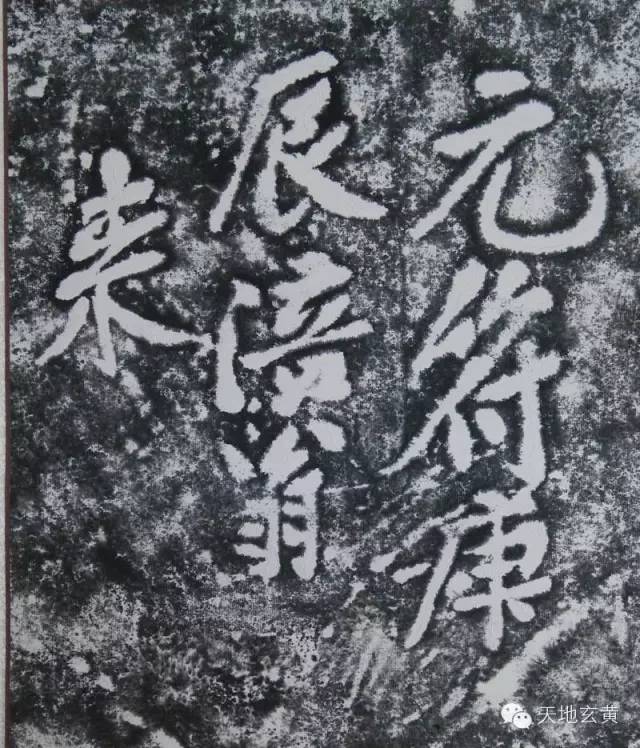 元符庚
辰涪翁
来
天地玄黄